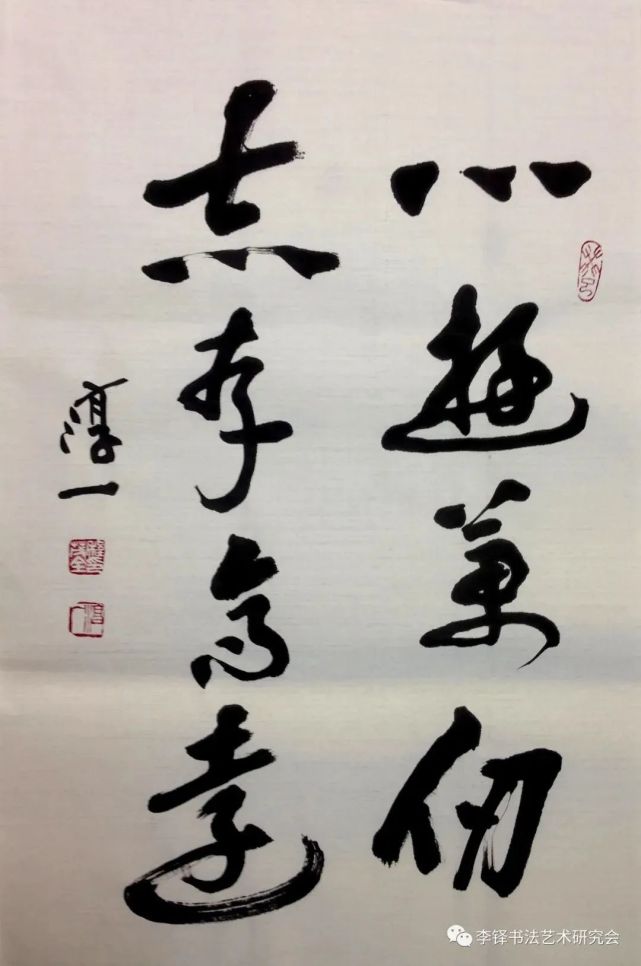 心遊萬仞
志存高遠
淳一
李铎书法艺术研究会